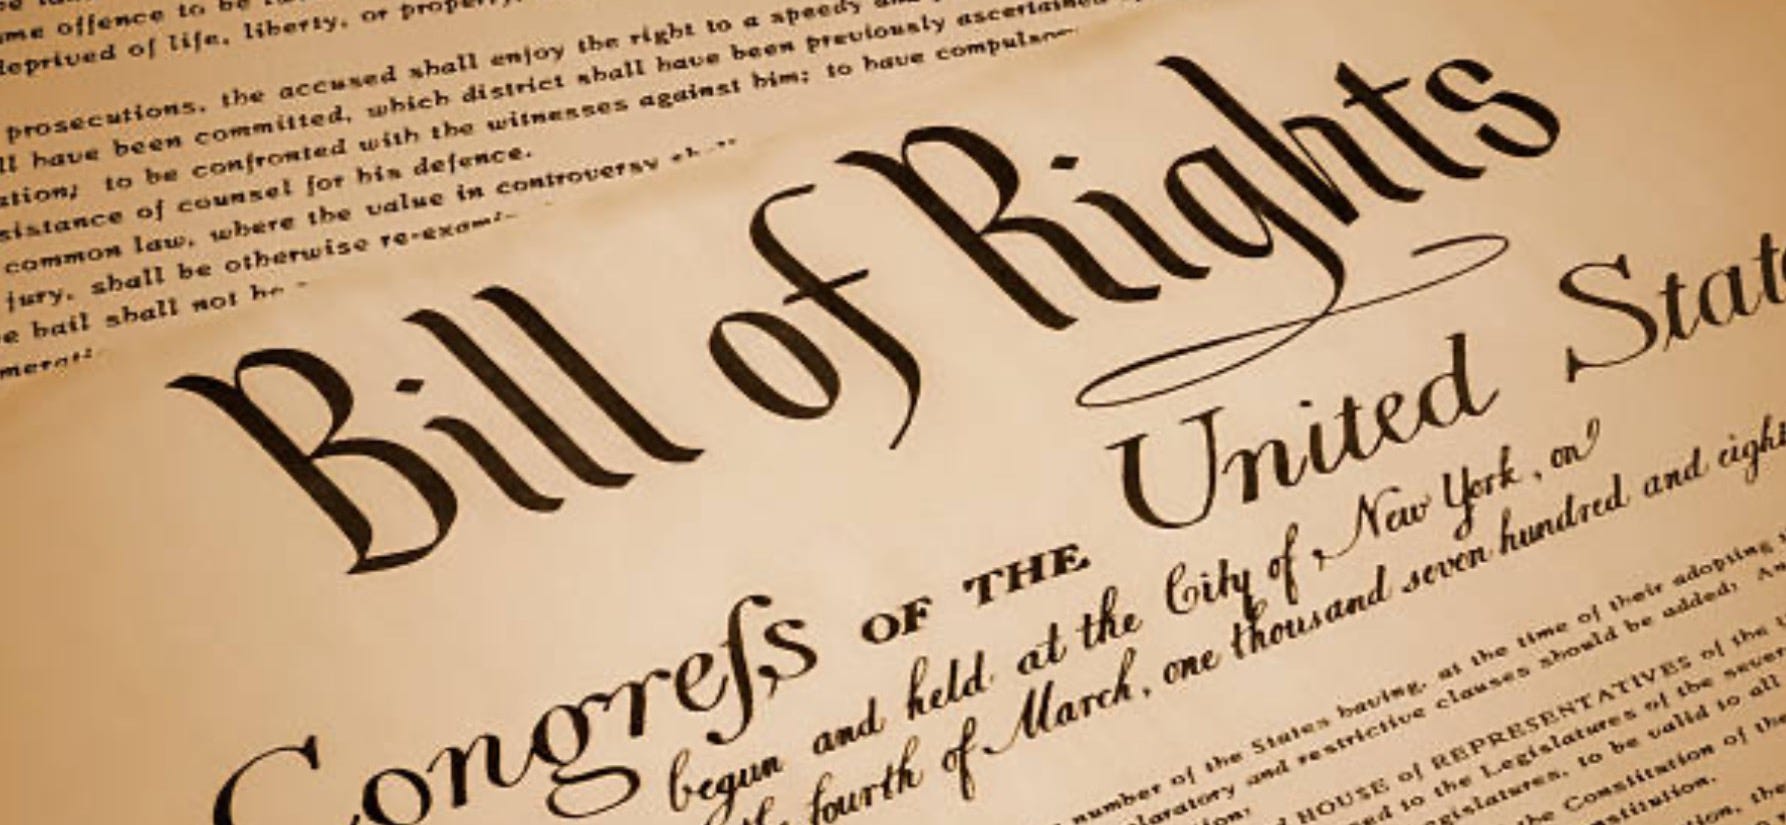 me offence to be
deprived of life, liberty, or property,
prosecutions, the accused shall enjoy the right to a speedy and
ll have been committed, which district shall have been previously ascertained
ation; to be confronted with the witnesses against him; to have
sistance of counsel for his defence.
common law, where the value in controversy
jury, shall be otherwise
e bail shall not be
Bill of Rights
Congreſs OF THE United State
begun and held at the City of New York, on
fourth of March, one thousand seven hundred and eight
number of the States having, at the time of their adopting
laratory and restrictive clauses should be added:
HOUSE of REPRESENTATIVES of the
ed to the Legislatures of the sever
gislatures, to be valid to all
the Constitution of the
nstitution.
tion, the